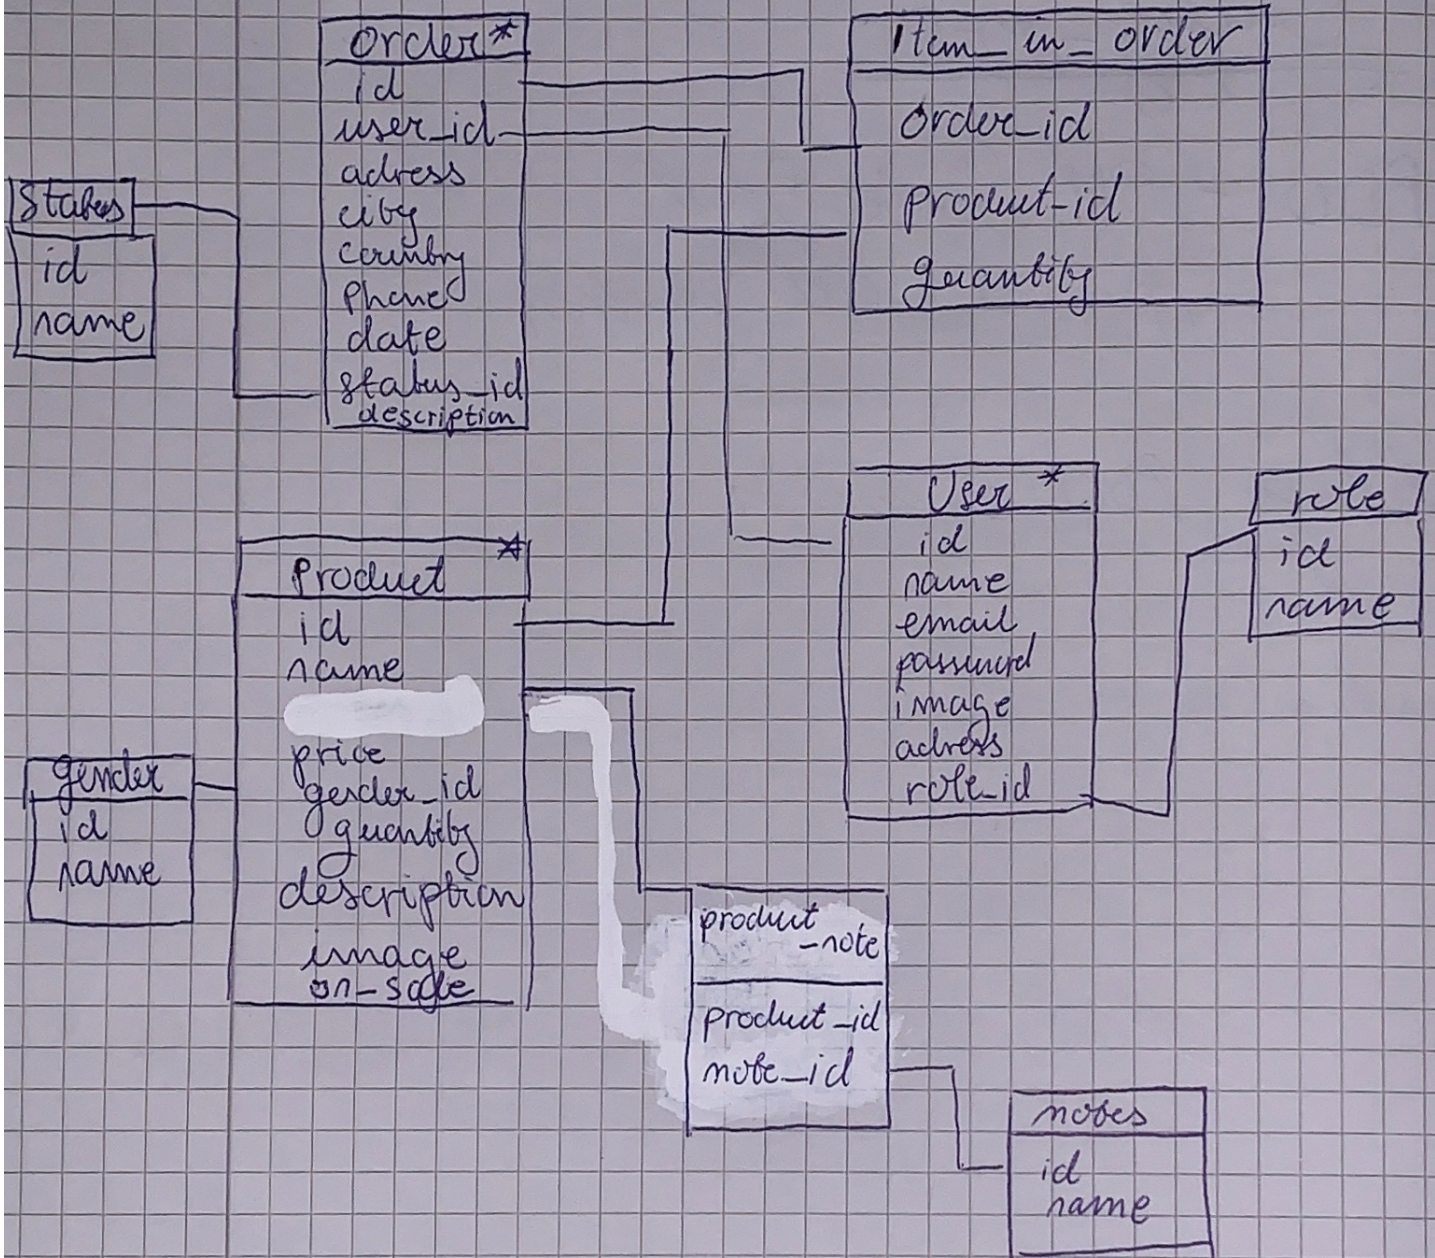 Order*
id
user_id
adress
city
country
phone
date
status_id
description
Item_in_order
order_id
product-id
quantity
Status
id
name
User *
id
name
email
password
image
adress
role_id
role
id
name
Product *
id
name
price
gender_id
quantity
description
image
on-sale
gender
id
name
product
-note
product_id
note_id
notes
id
name